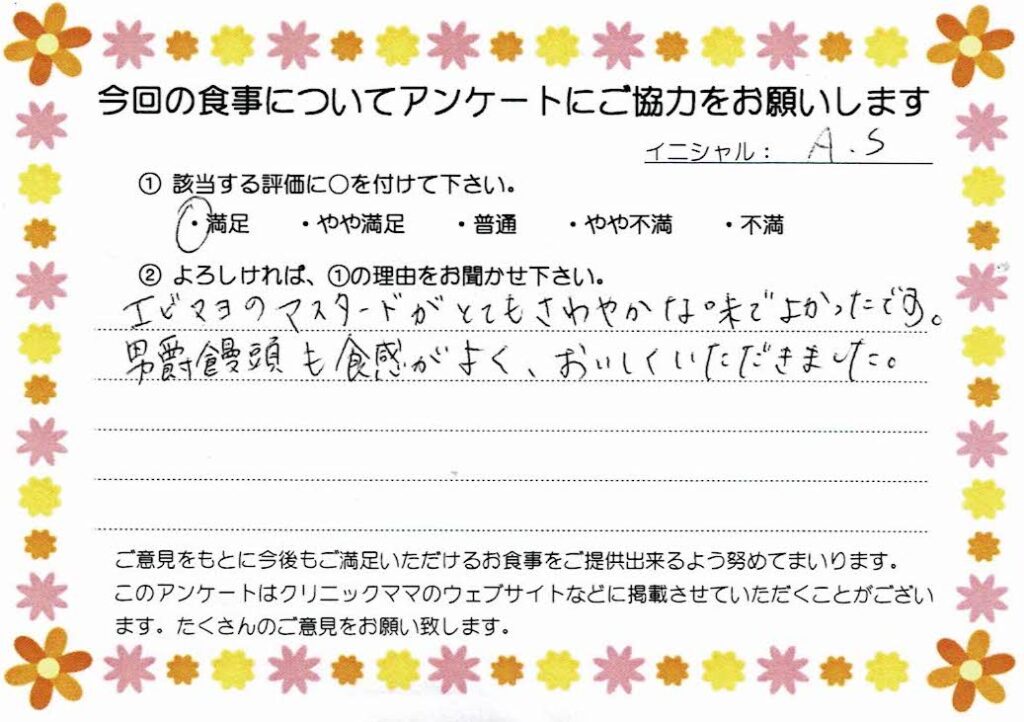 今回の食事についてアンケートにご協力をお願いします
イニシャル： A.S
① 該当する評価に〇を付けて下さい。
・満足 ・やや満足 ・普通 ・やや不満 ・不満
② よろしければ、①の理由をお聞かせ下さい。
エビマヨのマスタードがとてもさわやかな味でよかったです。
男爵饅頭も食感がよく、おいしくいただきました。
ご意見をもとに今後もご満足いただけるお食事をご提供出来るよう努めてまいります。
このアンケートはクリニックママのウェブサイトなどに掲載させていただくことがござい
ます。たくさんのご意見をお願い致します。